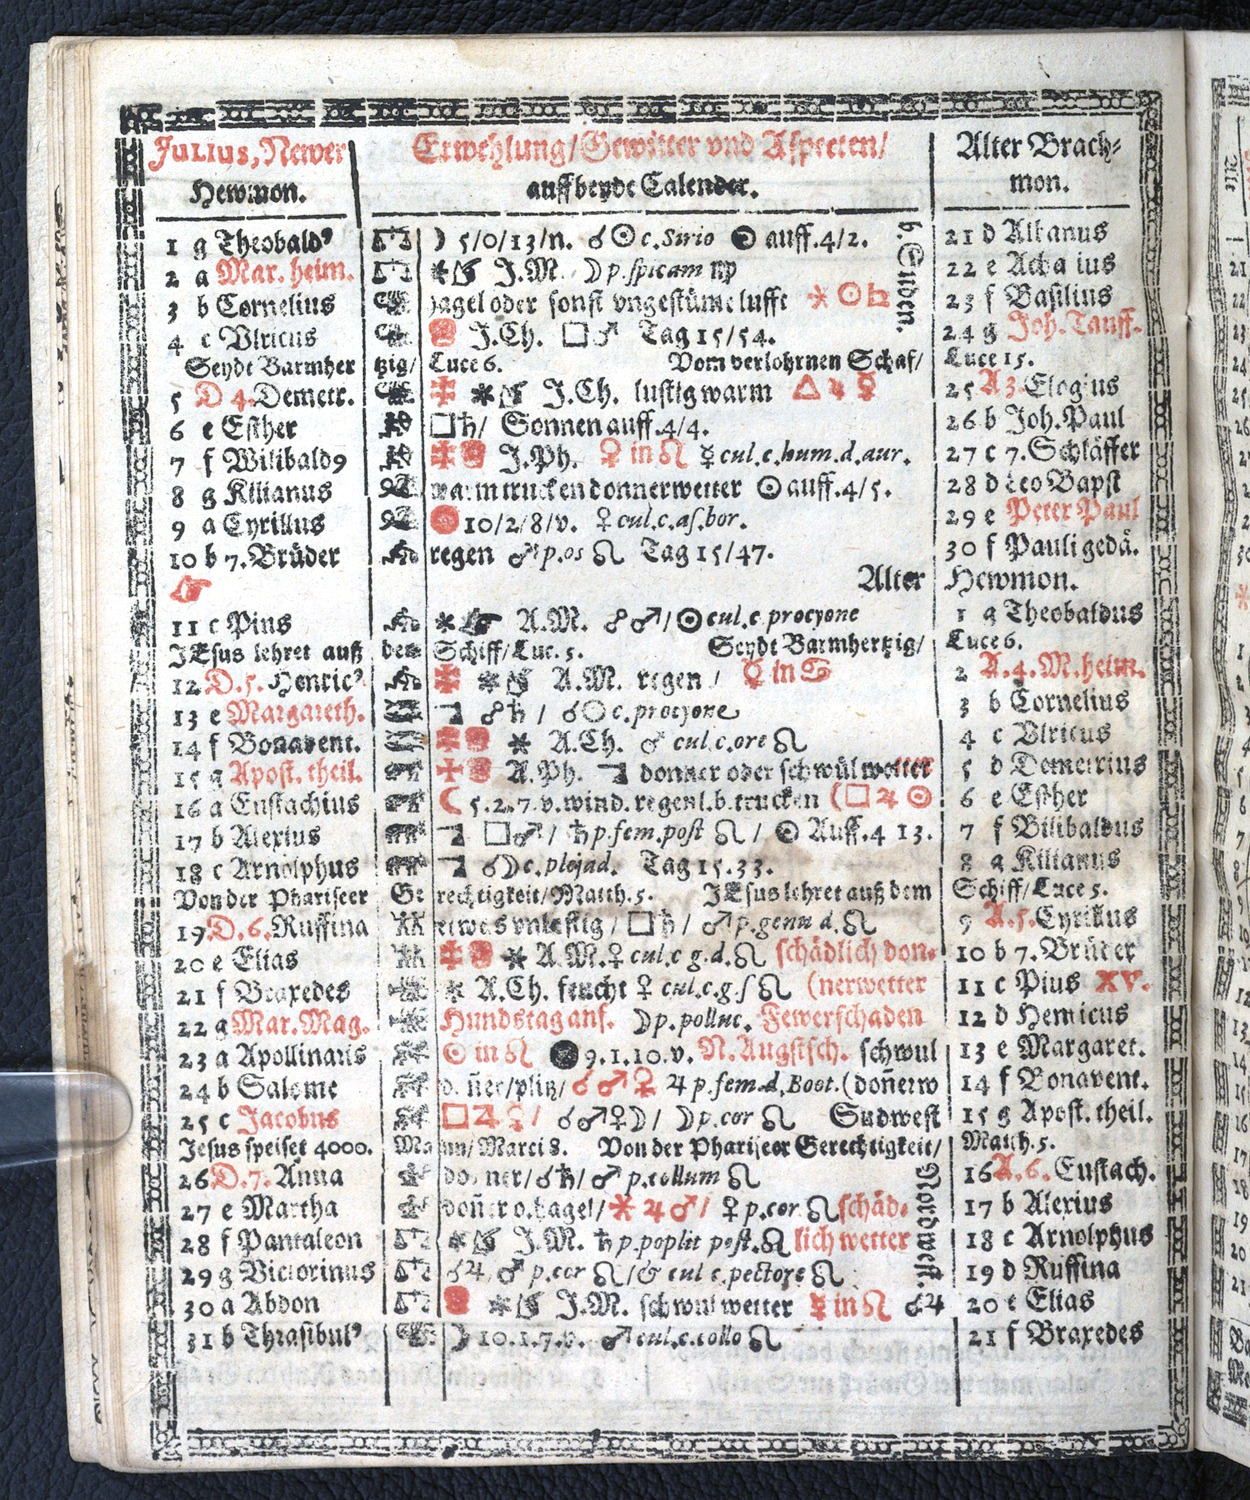 JULIUS, Newer Erwehlung/Gewitter vnd Aspecten/ Alter Brach-
Hewmon. auff beyde Calender. mon.
1 g Theobald⁹ ☽ 5/0/13/n. ☌☉c. Sirio auff.4/2. 21 d Albanus
2 a Mar. heim. J.M. ☽ p. spicam ♍ 22 e Achatius
3 b Cornelius hagel oder sonst vngestüme lufft ⚹☉♄ 23 f Basilius
4 c Vlricus J.Ch. □♂ Tag 15/54. 24 g Joh. Tauff.
h. Süden.
Seydt Barmhertzig/ Luce 6. Vom verlohrnen Schaf/ Luce 15.
5 D 4. Demetr. J.Ch. lustig warm △♃☿ 25 A3. Elogius
6 e Esther □♄/ Sonnen auff.4/4. 26 b Joh. Paul
7 f Wilibald9 J.Ph. ♀ in ♌ ☿ cul.c.hum.d.aur. 27 c 7. Schläffer
8 g Kilianus warm trucken donnerwetter ☉ auff.4/5. 28 d Leo Bapst
9 a Cyrillus 10/2/8/v. ♀ cul.c.as.bor. 29 e Peter Paul
10 b 7. Brüder regen ♂ p.os ♌ Tag 15/47. 30 f Pauli gedä.
☞ Alter Hewmon.
11 c Pius ⚹ A.M. ☍♂/☉ cul.c procyone 1 g Theobaldus
JEsus lehret auß dem Schiff/Luc. 5. Seydt Barmhertzig/ Luce 6.
12 D.5. Henric⁹ A.M. regen / ☿ in ♋ 2 A.4. M.heim.
13 e Margareth. ☍♄ / ☌☉ c.procyone 3 b Cornelius
14 f Bonavent. ⚹ A.Ch. ♂ cul.c.ore ♌ 4 c Vlricus
15 g Apost. theil. A.Ph. donner oder schwül wetter 5 d Demetrius
16 a Eustachius ☾ 5.2.7.v. wind. regenl.b.trucken (□♃☉ 6 e Esther
17 b Alexius □♂/ ♄ p.fem.post ♌ / ☉ Auff.4 13. 7 f Bilibaldus
18 c Arnolphus ☌☽c.plejad. Tag 15.33. 8 g Kilianus
Von der Phariseer Gerechtigkeit/Matth.5. JEsus lehret auß dem Schiff/Luce 5.
19 D.6. Ruffina etwas vnlustig / □♄ / ♂ p.genu d.♌ 9 A.5. Cyrillus
20 e Elias ⚹ A.M. ♀ cul.c g.d.♌ schädlich don- 10 b 7. Brüder
21 f Braxedes ⚹ A.Ch. feucht ♀ cul.c.g.s ♌ (nerwetter 11 c Pius XV.
22 g Mar. Mag. Hundstag anf. ☽p.polluc. Fewerschaden 12 d Henricus
23 a Apollinaris ☉ in ♌ 9.1.10.v. N. Augstsch. schwul 13 e Margaret.
24 b Salome ☌♂♀ ♃ p.fem.d.Boot.(doñerw 14 f Bonavent.
25 c Jacobus □♃♀/ ☌♂♀☽/ ☽p.cor ♌ Sudwest 15 g Apost. theil.
Jesus speiset 4000. Mann/Marci 8. Von der Phariseer Gerechtigkeit/ Matth. 5.
26 D.7. Anna donner/☌♄/ ♂ p.collum ♌ 16 A.6. Eustach.
27 e Martha doñer o.hagel/⚹♃♂/ ♀ p.cor ♌ schäd- 17 b Alexius
28 f Pantaleon J.M. ♄ p.poplit post.♌ lich wetter 18 c Arnolphus
29 g Victorinus ☌♃ ♂ p.cor ♌/& cul c.pectore ♌ 19 d Ruffina
30 a Abdon J.M. schwul wetter ☿ in ♌ ☌♃ 20 e Elias
Nordwest.
31 b Thrasibul⁹ ☽ 10.1.7.v. ♂ cul.c.collo ♌ 21 f Braxedes